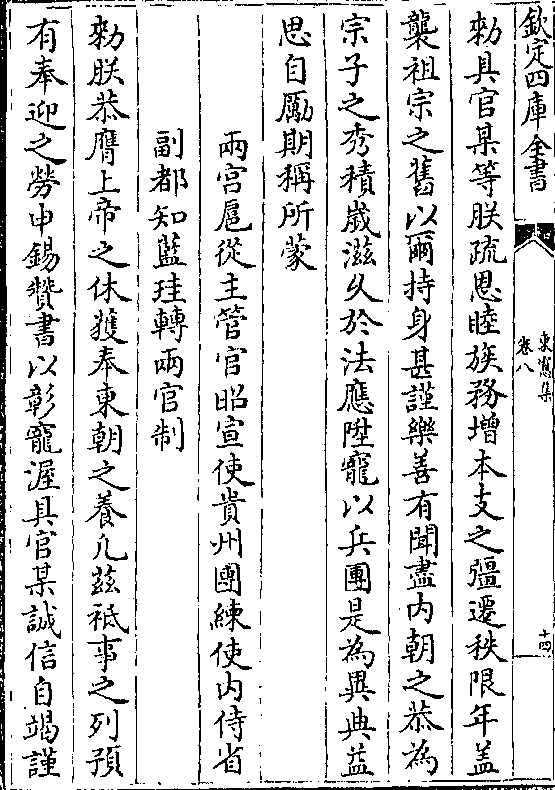 欽定四庫全書
東窻集
卷八
十四
勑具官某等朕疏恩睦族務增本支之彊遷秩限年盖
襲祖宗之舊以爾持身甚謹樂善有聞盡内朝之恭為
宗子之秀積歲滋乆於法應陞寵以兵團是為異典益
思自勵期稱所蒙
兩宫扈從主管官昭宣使貴州團練使内侍省
副都知藍珪轉兩官制
勑朕恭膺上帝之休獲奉東朝之養凡兹祗事之列預
有奉迎之勞申錫贊書以彰寵渥具官某誠信自竭謹